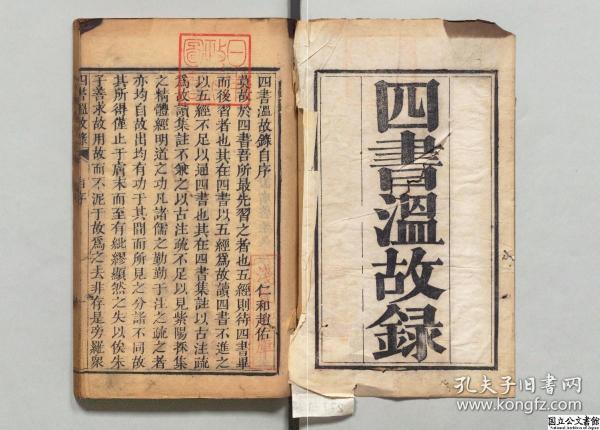 四書溫故錄
四書溫故錄自序
仁和趙佑
莫故於四書吾所最先習之者也五經則待四書畢
而後習者也其在四書以五經為故讀四書不進之
以五經不足以通四書也其在四書集註以古注疏
為故讀集註不兼之以古注疏不足以見紫陽採集
之精體經明道之功凡諸儒之勤勤于注之疏之者
亦均自故出均有功于其間而所見之分諸不同故
其所得僅止于唐末而至有紕繆顯然之失以俟朱
子善求故用故而不泥于故為之去非存是旁羅眾
四書溫故錄
自序
孔夫子旧书网
www.kongfz.com
国立公文書館
National Archives of Japan